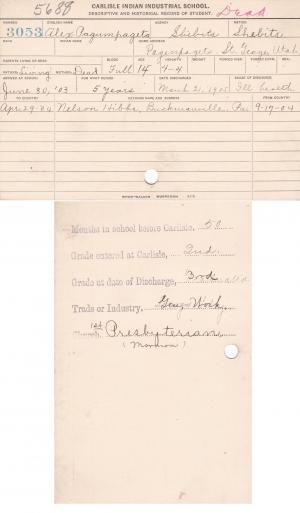 5688 CARLISLE INDIAN INDUSTRIAL SCHOOL.
DESCRIPTIVE AND HISTORICAL RECORD OF STUDENT. Dead
NUMBER ENGLISH NAME AGENCY NATION
3053 Alex Pagumpageta Shibits Shebits
INDIAN NAME HOME ADDRESS
Pagumpageta St. George, Utah
PARENTS LIVING OR DEAD BLOOD AGE
FATHER Living MOTHER Dead Full 14 4-4
ARRIVED AT SCHOOL FOR WHAT PERIOD DATE DISCHARGED CAUSE OF DISCHARGE
June 30, '03 5 years March 21, 1905 Ill health
TO COUNTRY PATRONS NAME AND ADDRESS FROM COUNTRY
Apr 29-04 Nelson Hibbs, Pa 9-17-04
Months in school before Carlisle, 50
Grade entered at Carlisle, 2nd
Grade at date of Discharge, 3rd
Trade or Industry, Gen. Work
Church, Presbyterian
(Mormon)